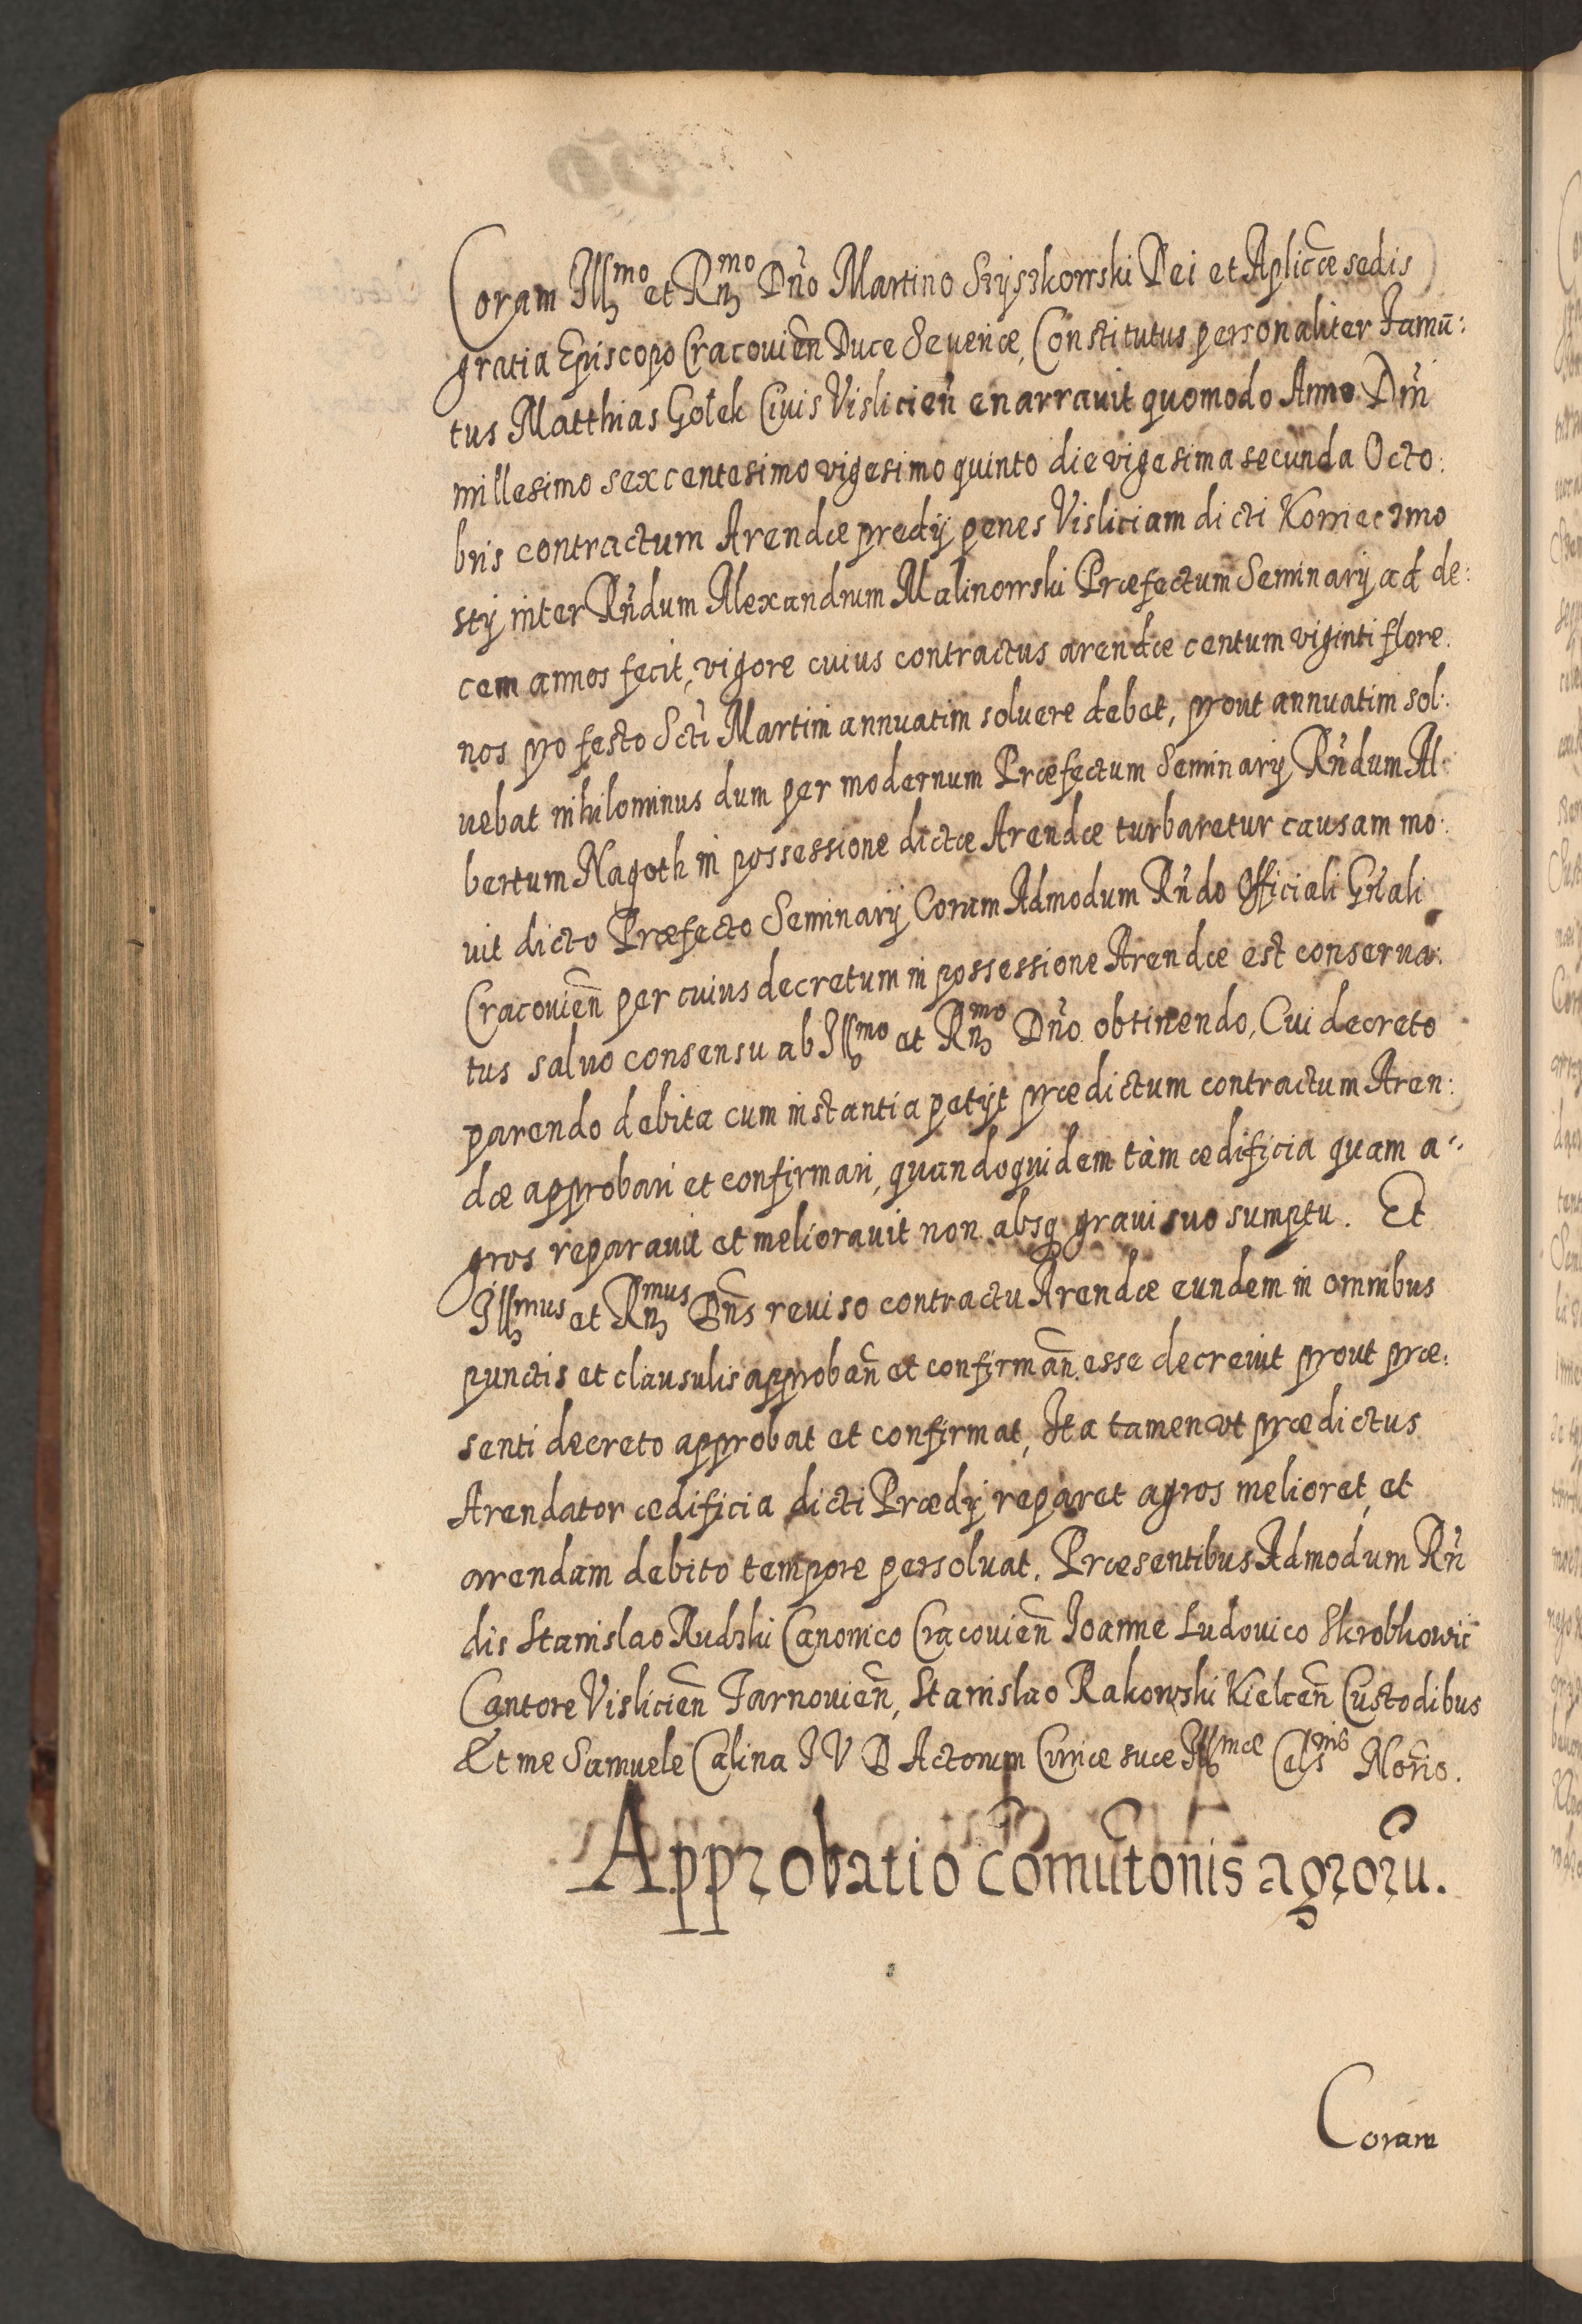 Coram Illmo et Rndmo Dño Martino Szyszkowski Dei et Aplicæ sedis
gratia Episcopo Cracovien̄ Duce Severiæ, Constitutus personaliter Famū:
tus Matthias Gołek Civis Vislicien̄ enarravit quomodo Anno Dñi
millesimo sexcentesimo vigesimo quinto die vigesima secunda Octo:
bris contractum Arendæ predij penes Visliciam dicti
inter Rñdum Alexandrum Malinowski Præfectum Seminarij ad de:
cem annos fecit, vigore cuius contractus arendæ centum viginti flore.
nos pro festo Scti Martini annuatim solvere debet, prout annuatim sol:
uebat nihilominus dum per modernum Præfectum Seminarij Rñdum Al:
bertum Nagoth in possessione dictæ Arendæ turbaretur causam mo:
uit dicto Præfecto Seminarij Coram Admodum Rñdo Officiali Gñali
Cracovien̄ per cuius decretum in possessione Arendæ est conserua:
tus salvo consensu ab Illmo et Rndmo Dño obtinendo, Cui decreto
parendo debita cum instantia petijt prædictum contractum Aren:
dæ approbari et confirmari, quandoquidem tàm ædificia quam a:
gros reparavit et melioravit non absq gravi suo sumptu. Et
Illmus et Rndmus Dñs reviso contractu Arendæ eundem in omnibus
punctis et clausulis approban̄ et confirman̄ esse decrevit prout præ:
senti decreto approbat et confirmat, Ita tamen vt prædictus
Arendator ædificia dicti Prædij reparet agros melioret, et
arendam debito tempore persolvat. Præsentibus Admodum Rñ
dis Stanislao Rudzki Canonico Cracovien̄ Joanne Ludovico Skrobkowic
Cantore Vislicien̄ Tarnovien̄, Stanislao Rakowski Kielcen̄ Custodibus
Et me Samuele Calina I V D Actorum Curiæ suæ Illmæ Celsnis Norio.
Approbatio comūtonis agrorū.
Coram